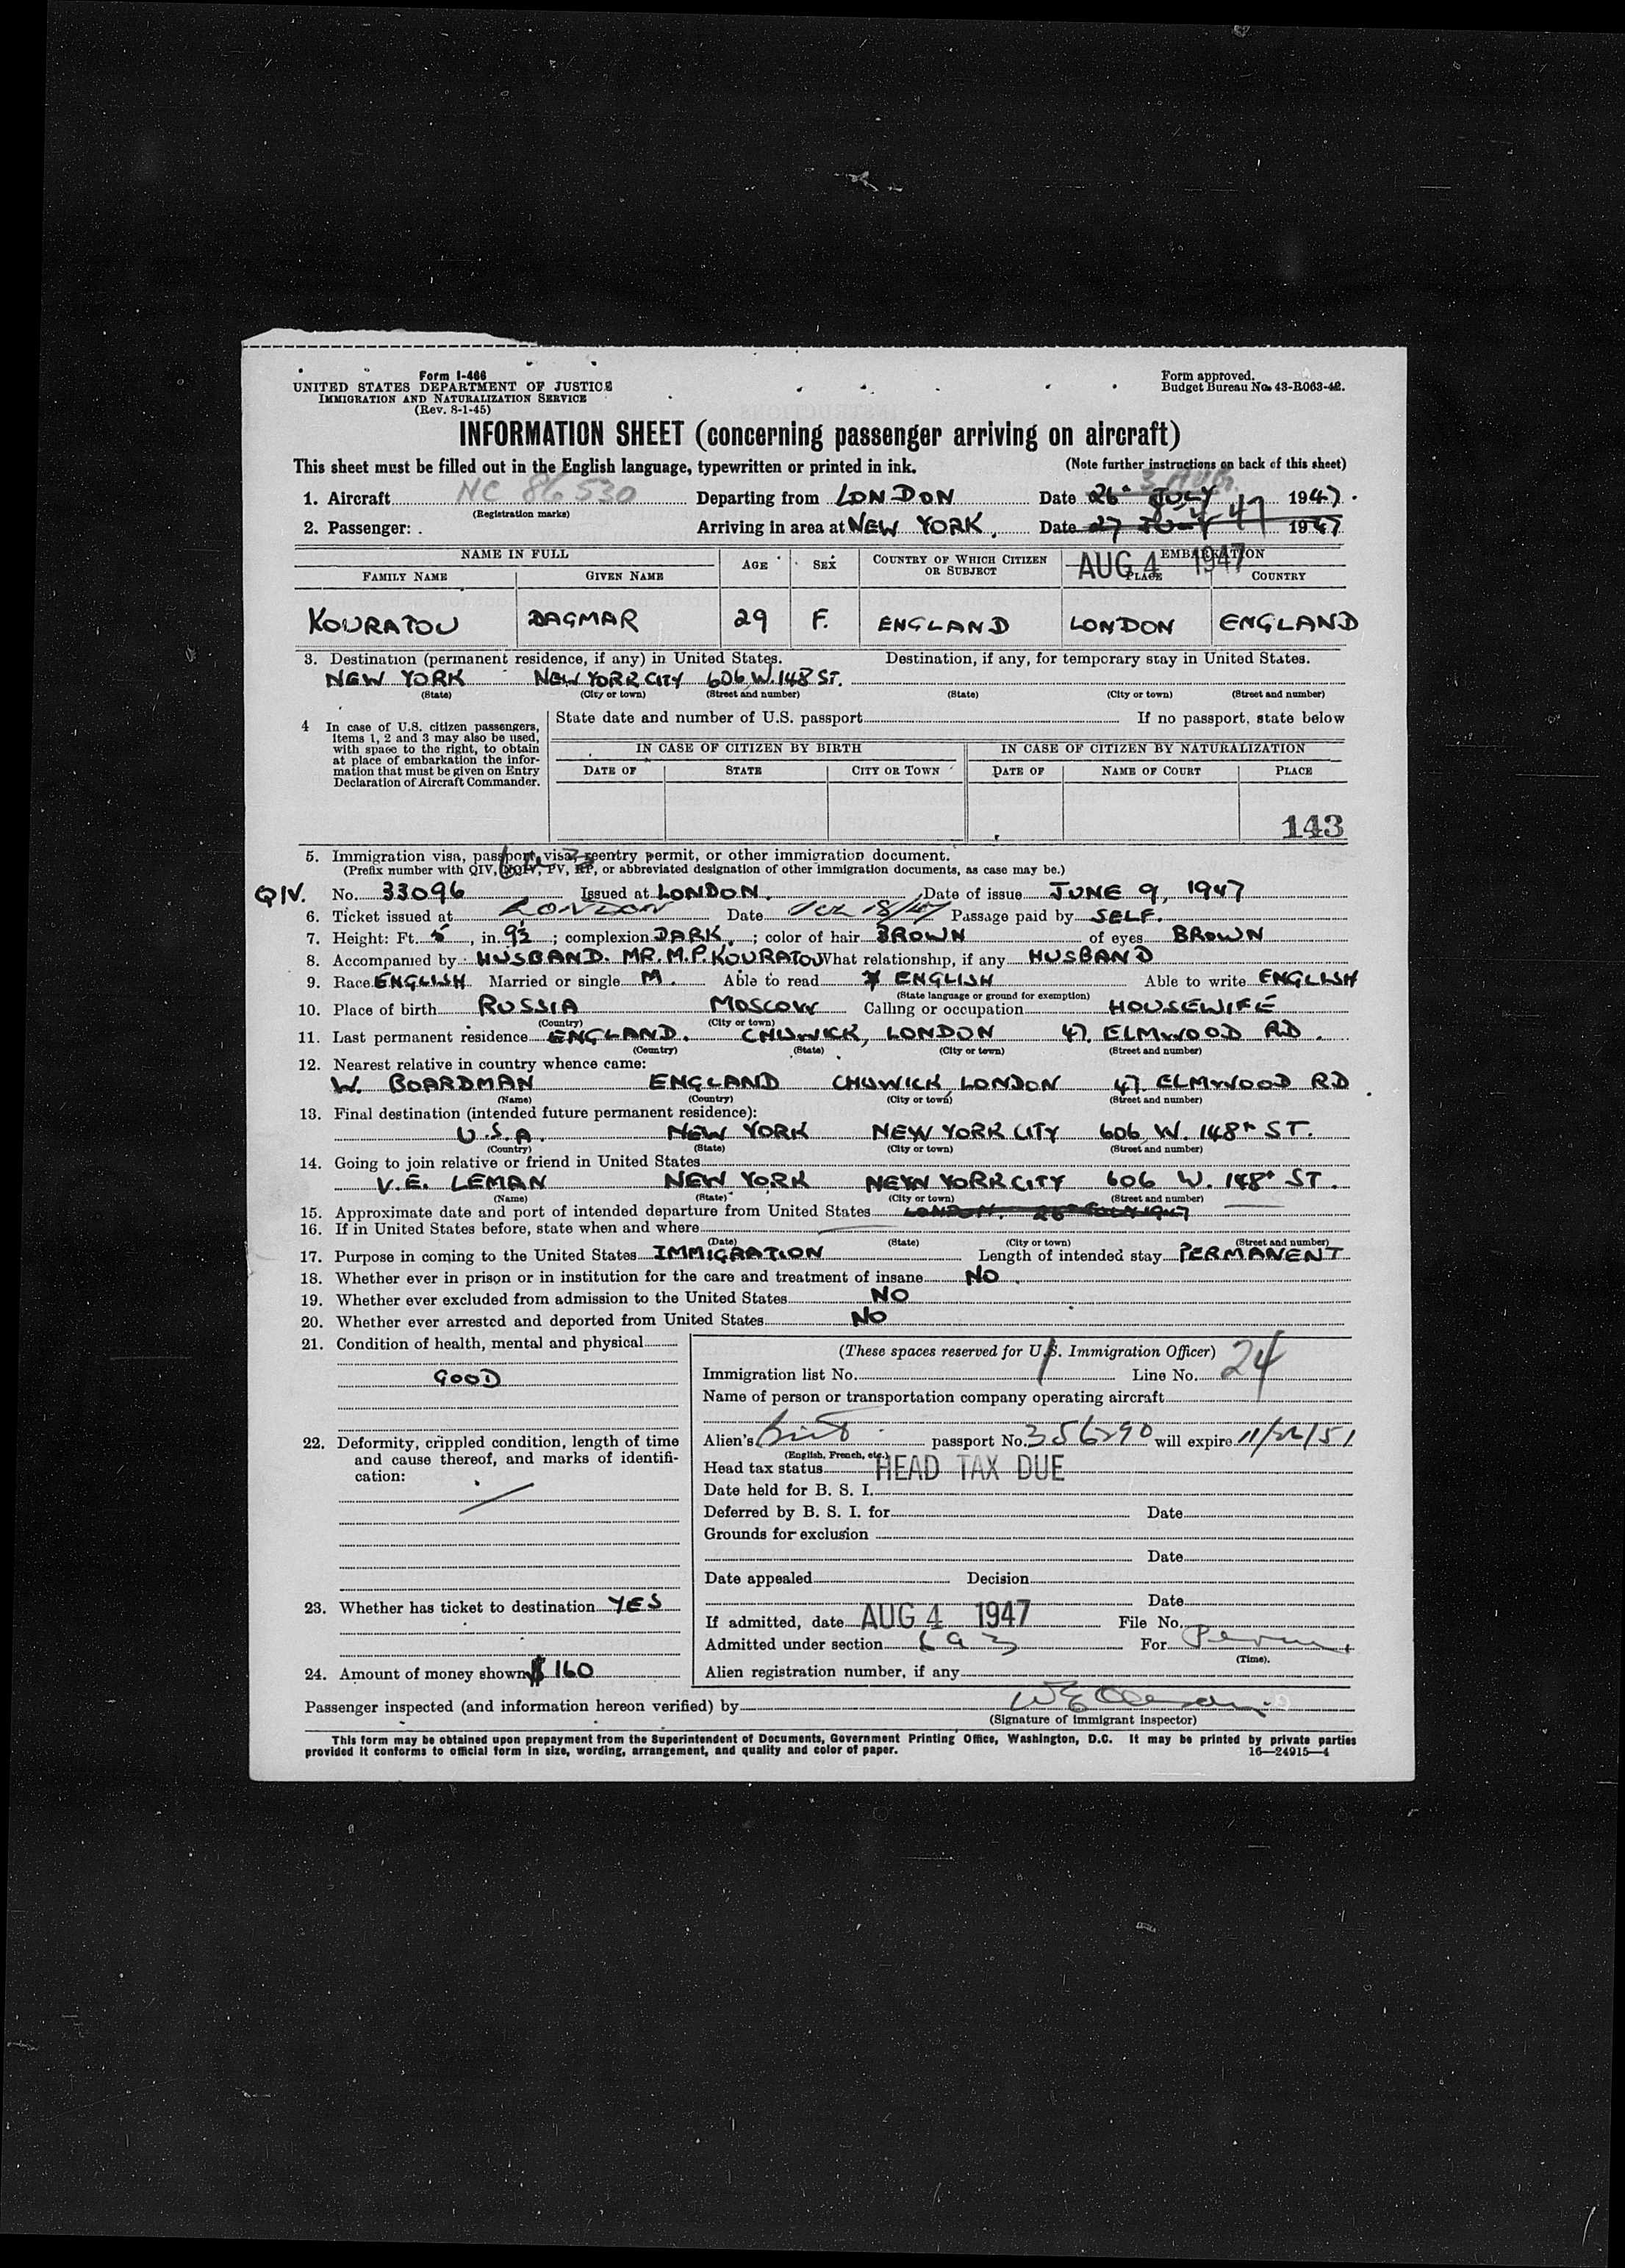 Form I-466
UNITED STATES DEPARTMENT OF JUSTICE
IMMIGRATION AND NATURALIZATION SERVICE
(Rev. 8-1-45)
Form approved.
Budget Bureau No. 43-R063-42.
INFORMATION SHEET (concerning passenger arriving on aircraft)
This sheet must be filled out in the English language, typewritten or printed in ink. (Note further instructions on back of this sheet)
3 AUG.
1. Aircraft NC 86530 Departing from LONDON Date 26 JULY 1947.
(Registration marks) 8-4-47
2. Passenger: Arriving in area at NEW YORK Date 27 JULY 1947
AUG 4 1947
NAME IN FULL AGE SEX COUNTRY OF WHICH CITIZEN OR SUBJECT EMBARKATION
FAMILY NAME GIVEN NAME PLACE COUNTRY
KOURATOU DAGMAR 29 F. ENGLAND LONDON ENGLAND
3. Destination (permanent residence, if any) in United States. Destination, if any, for temporary stay in United States.
NEW YORK NEW YORK CITY 606 W. 148 ST.
(State) (City or town) (Street and number) (State) (City or town) (Street and number)
4 In case of U.S. citizen passengers, items 1, 2 and 3 may also be used, with space to the right, to obtain at place of embarkation the information that must be given on Entry Declaration of Aircraft Commander.
State date and number of U.S. passport If no passport, state below
IN CASE OF CITIZEN BY BIRTH IN CASE OF CITIZEN BY NATURALIZATION
DATE OF STATE CITY OR TOWN DATE OF NAME OF COURT PLACE
143
5. Immigration visa, passport visa, reentry permit, or other immigration document.
(Prefix number with QIV, NQIV, PV, RP, or abbreviated designation of other immigration documents, as case may be.)
QIV. No. 33096 Issued at LONDON. Date of issue JUNE 9, 1947
6. Ticket issued at LONDON Date Passage paid by SELF.
7. Height: Ft. 5, in. 9½; complexion DARK; color of hair BROWN of eyes BROWN
8. Accompanied by HUSBAND. MR. M.P. KOURATOU What relationship, if any HUSBAND
9. Race ENGLISH Married or single M. Able to read ENGLISH Able to write ENGLISH
(State language or ground for exemption)
10. Place of birth RUSSIA MOSCOW Calling or occupation HOUSEWIFE
(Country) (City or town)
11. Last permanent residence ENGLAND. CHISWICK, LONDON 47, ELMWOOD RD.
(Country) (State) (City or town) (Street and number)
12. Nearest relative in country whence came:
W. BOARDMAN ENGLAND CHISWICK LONDON 47 ELMWOOD RD
(Name) (Country) (City or town) (Street and number)
13. Final destination (intended future permanent residence):
U.S.A. NEW YORK NEW YORK CITY 606 W. 148th ST.
(Country) (State) (City or town) (Street and number)
14. Going to join relative or friend in United States
V.E. LEMAN NEW YORK NEW YORK CITY 606 W. 148th ST.
(Name) (State) (City or town) (Street and number)
15. Approximate date and port of intended departure from United States LONDON. 26 JULY 1947
16. If in United States before, state when and where
(Date) (State) (City or town) (Street and number)
17. Purpose in coming to the United States IMMIGRATION Length of intended stay PERMANENT
18. Whether ever in prison or in institution for the care and treatment of insane NO
19. Whether ever excluded from admission to the United States NO
20. Whether ever arrested and deported from United States NO
21. Condition of health, mental and physical
GOOD
22. Deformity, crippled condition, length of time and cause thereof, and marks of identification:
23. Whether has ticket to destination YES
24. Amount of money shown $160
(These spaces reserved for U.S. Immigration Officer)
Immigration list No. 1 Line No. 24
Name of person or transportation company operating aircraft
Alien's Brit passport No. 356290 will expire 11/26/51
(English, French, etc.)
Head tax status HEAD TAX DUE
Date held for B. S. I.
Deferred by B. S. I. for Date
Grounds for exclusion
Date
Date appealed Decision
Date
If admitted, date AUG 4 1947 File No.
Admitted under section 6a3 For Perm.
(Time).
Alien registration number, if any
Passenger inspected (and information hereon verified) by
(Signature of immigrant inspector)
This form may be obtained upon prepayment from the Superintendent of Documents, Government Printing Office, Washington, D.C. It may be printed by private parties
provided it conforms to official form in size, wording, arrangement, and quality and color of paper. 16—24915-4